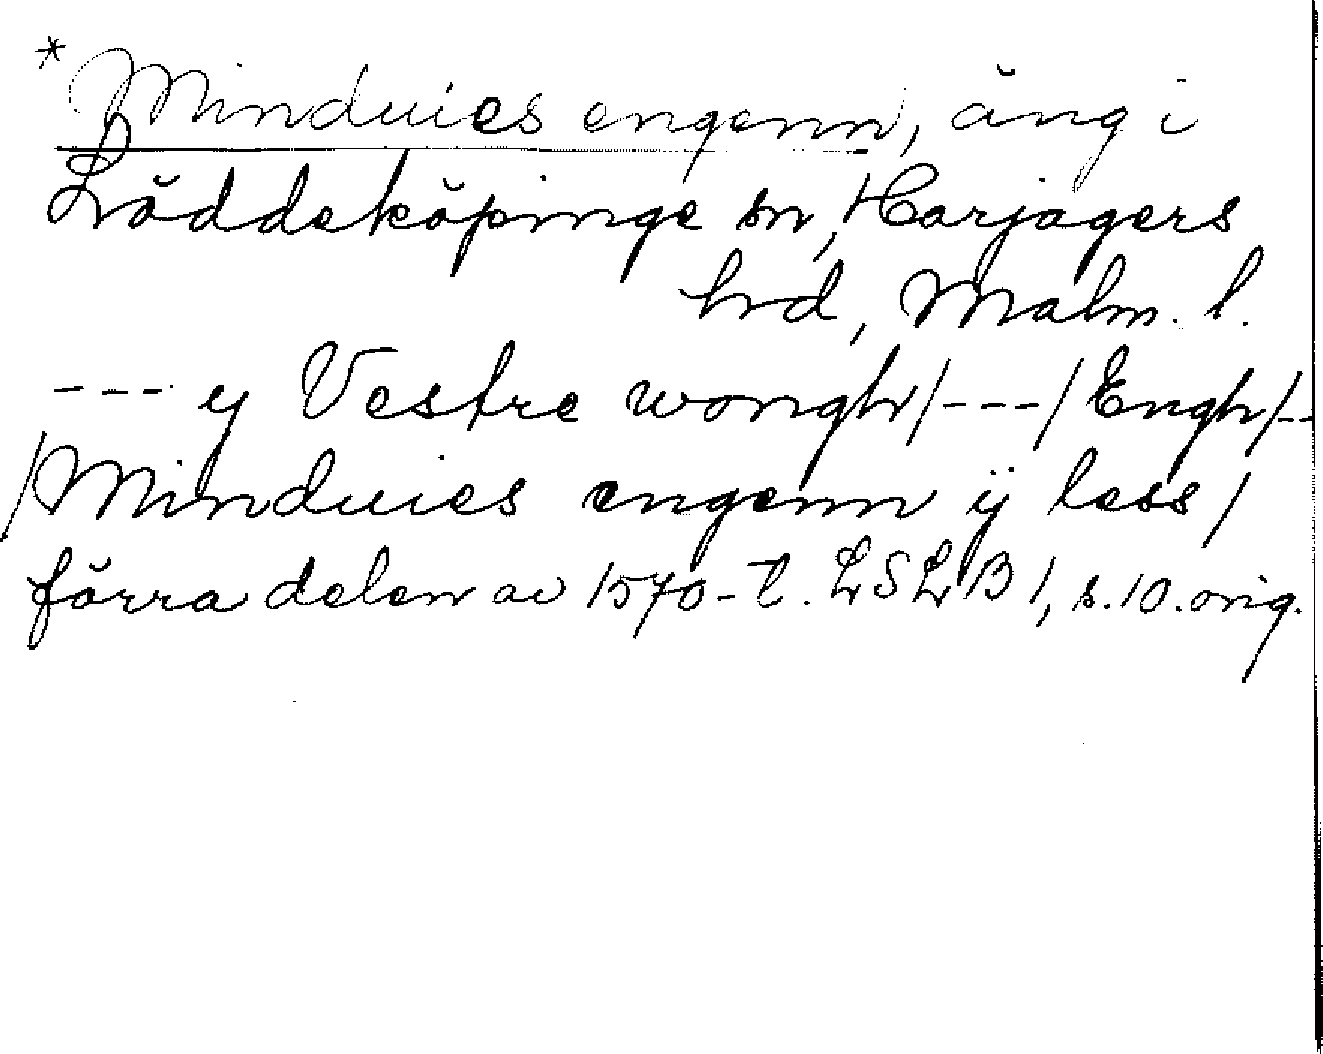 * Minduies engenn, äng i
Löddeköpinge sn, Harjagers
hrd, Malm. l.
--- y Vestre wongh/---/Engh/--
/Minduies engenn ij less/
förra delen av 1570-t. LSLB 1, s. 10. orig.